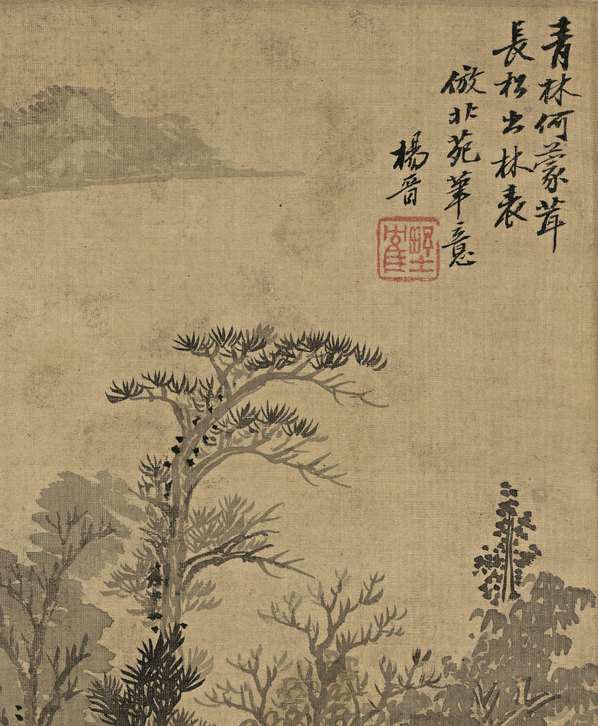 青林何蒙茸
長松出林表
倣北苑筆意
楊晉
野鶴